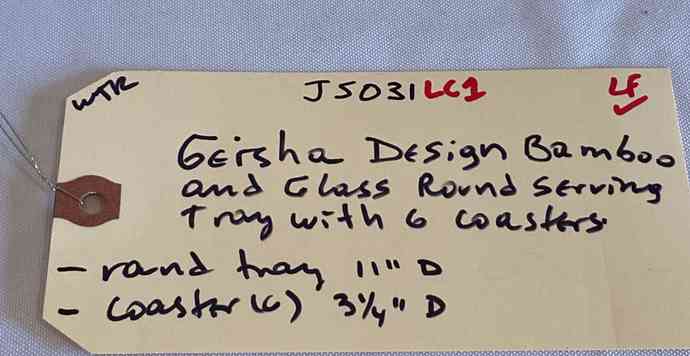 WTR J5031LC1 LF
Geisha Design Bamboo
and Glass Round Serving
Tray with 6 coasters
- rand tray 11" D
- Coaster (6) 3 1/4" D